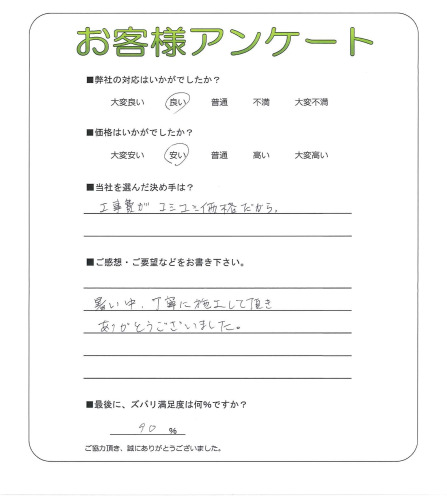 お客様アンケート
■弊社の対応はいかがでしたか?
大変良い 良い 普通 不満 大変不満
■価格はいかがでしたか?
大変安い 安い 普通 高い 大変高い
■当社を選んだ決め手は?
工事費がコミコミ価格だから。
■ご感想・ご要望などをお書き下さい。
暑い中、丁寧に施工して頂き
ありがとうございました。
■最後に、ズバリ満足度は何%ですか?
90 %
ご協力頂き、誠にありがとうございました。